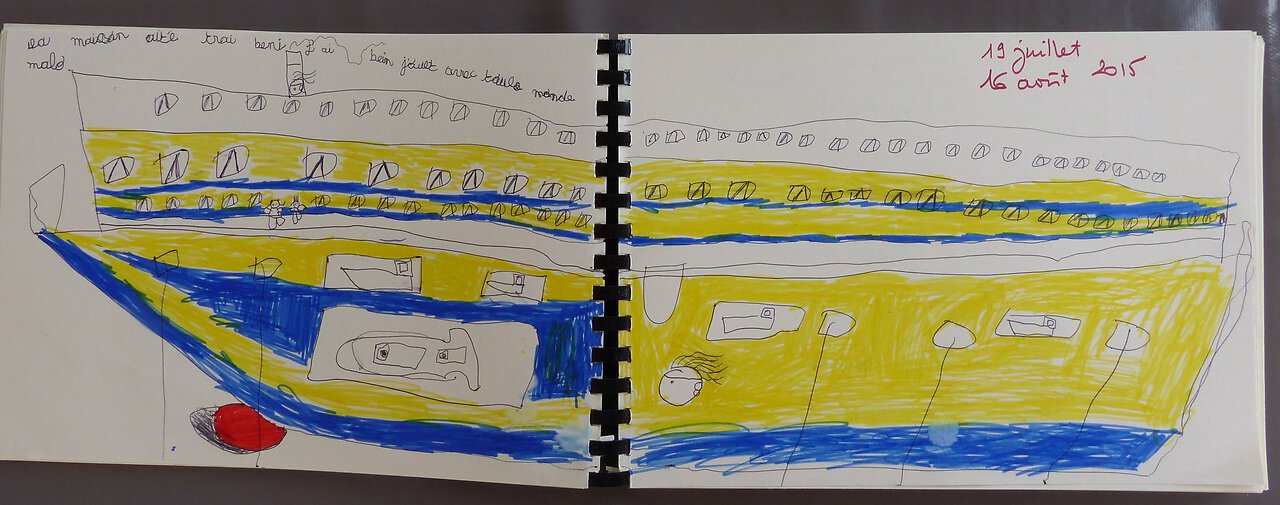 sa maison alte trai beni j'ai bein jouet avec toule monde
malo
19 juillet
16 août 2015